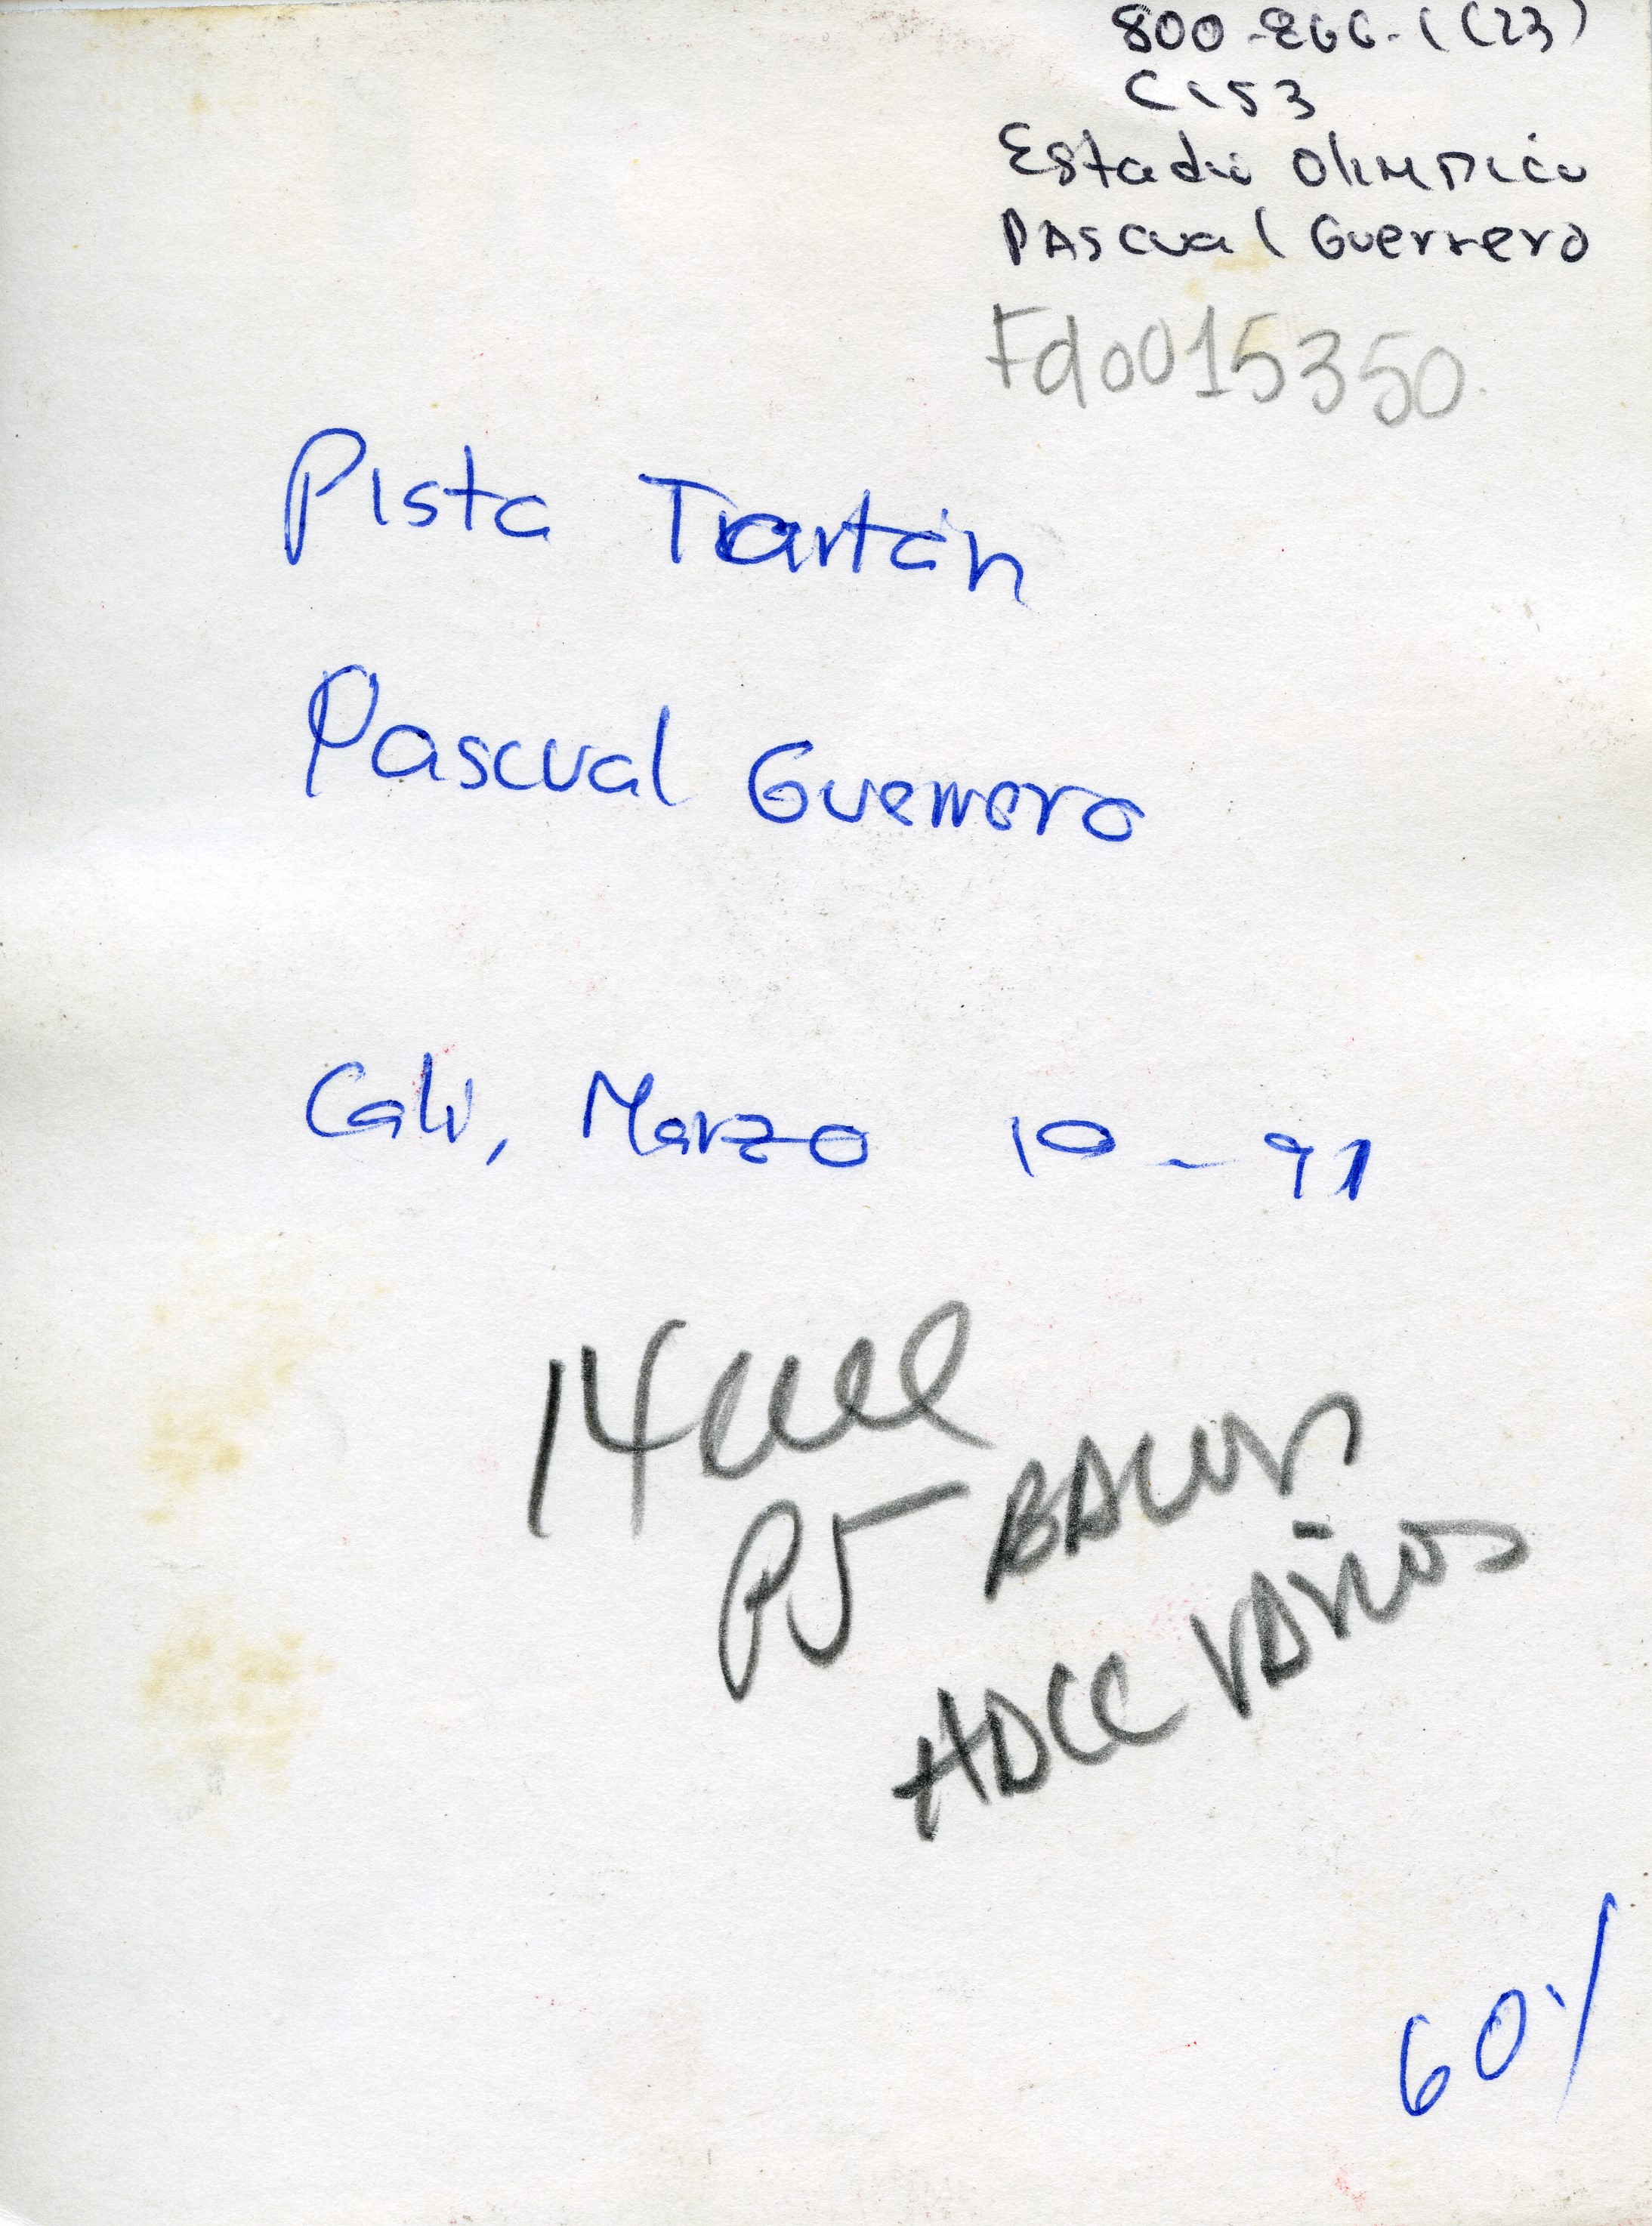 800-866-1(23)
C153
Estadio Olimpico
PAscual Guerrero
Fdo015350
Pista Tartan
Pascual Guerrero
Cali, Marzo 10-91
14
P5
VARIOS
60%